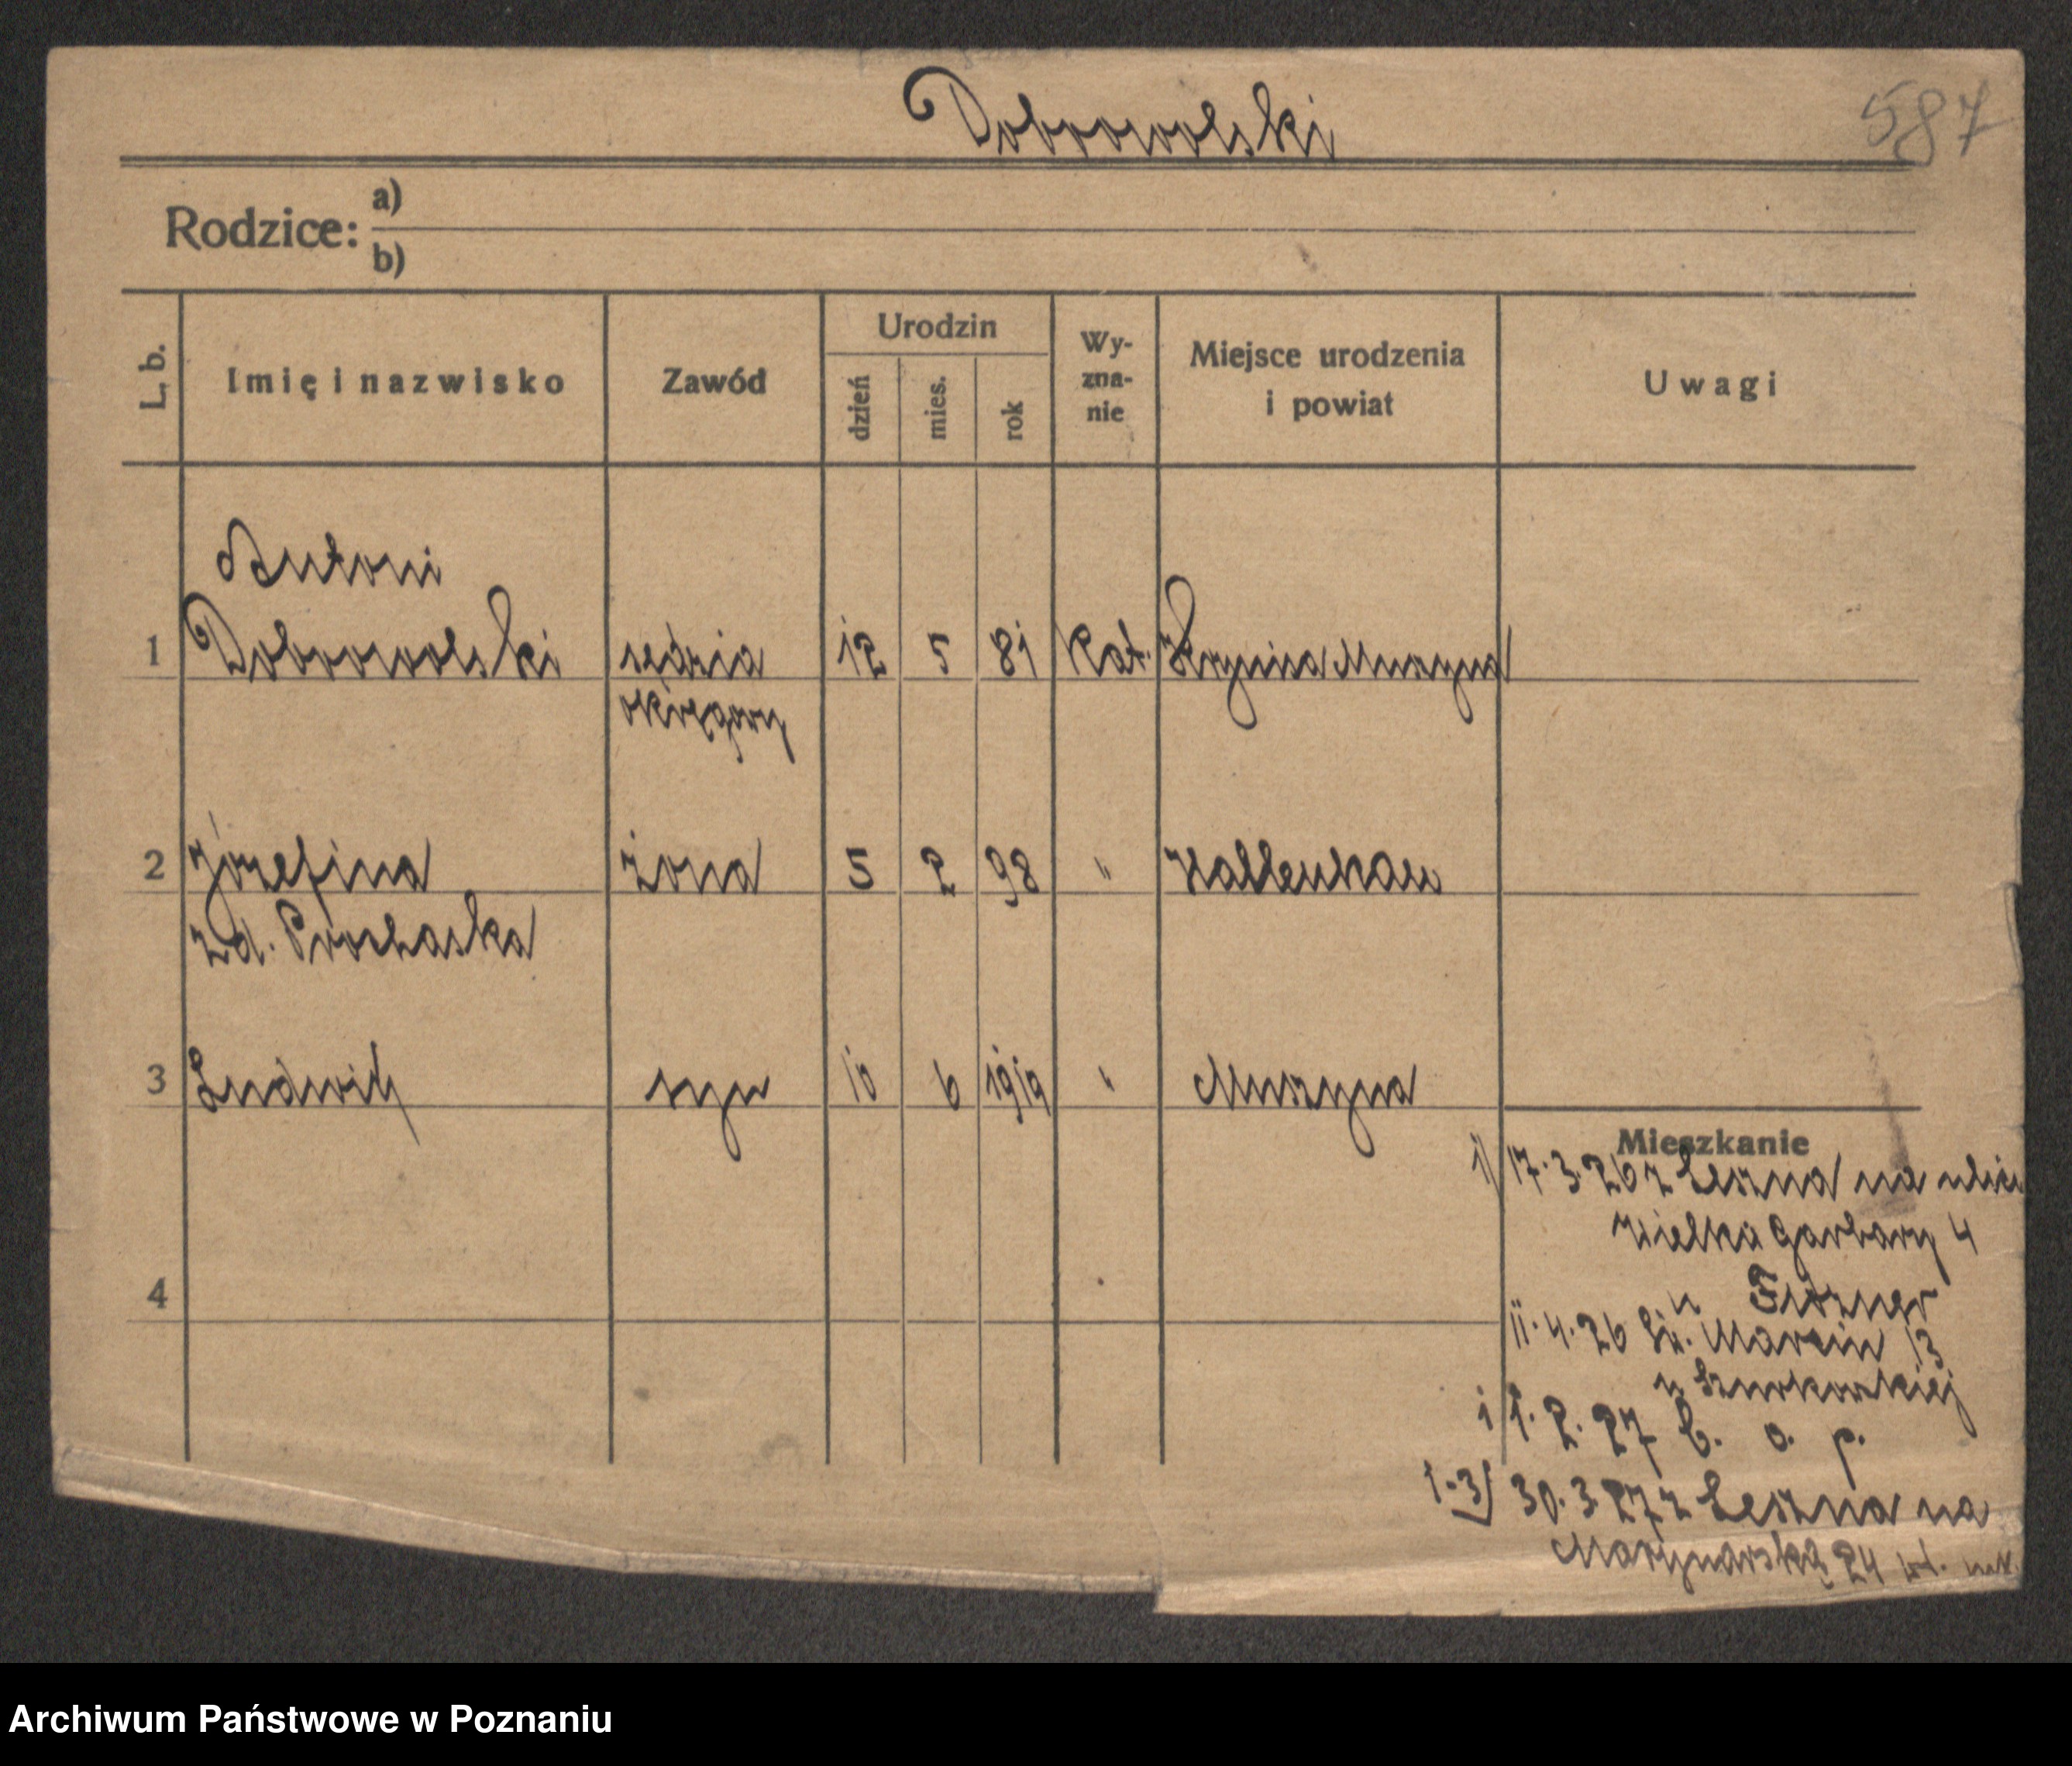 Dobrowolski
587
Rodzice: a)
b)
L. b.
Imię i nazwisko
Zawód
Urodzin
dzień
mies.
rok
Wy-
zna-
nie
Miejsce urodzenia
i powiat
Uwagi
Antoni
1 Dobrowolski sędzia 12 5 81 Kat. Muszyna
okręgowy
2 Józefina żona 5 2 98 "
zd. Prochaska
3 Ludwik syn 10 6 1919 " Muszyna
Mieszkanie
1/ 17.3.26 z Leszna na ulicę
Wielka Garbary 4
u
4
11.4.26 Św. Marcin 13
u
1 1.2.27 b. o. p.
1-3/ 30.3.27 z Leszna na
Marynarską 24
Archiwum Państwowe w Poznaniu